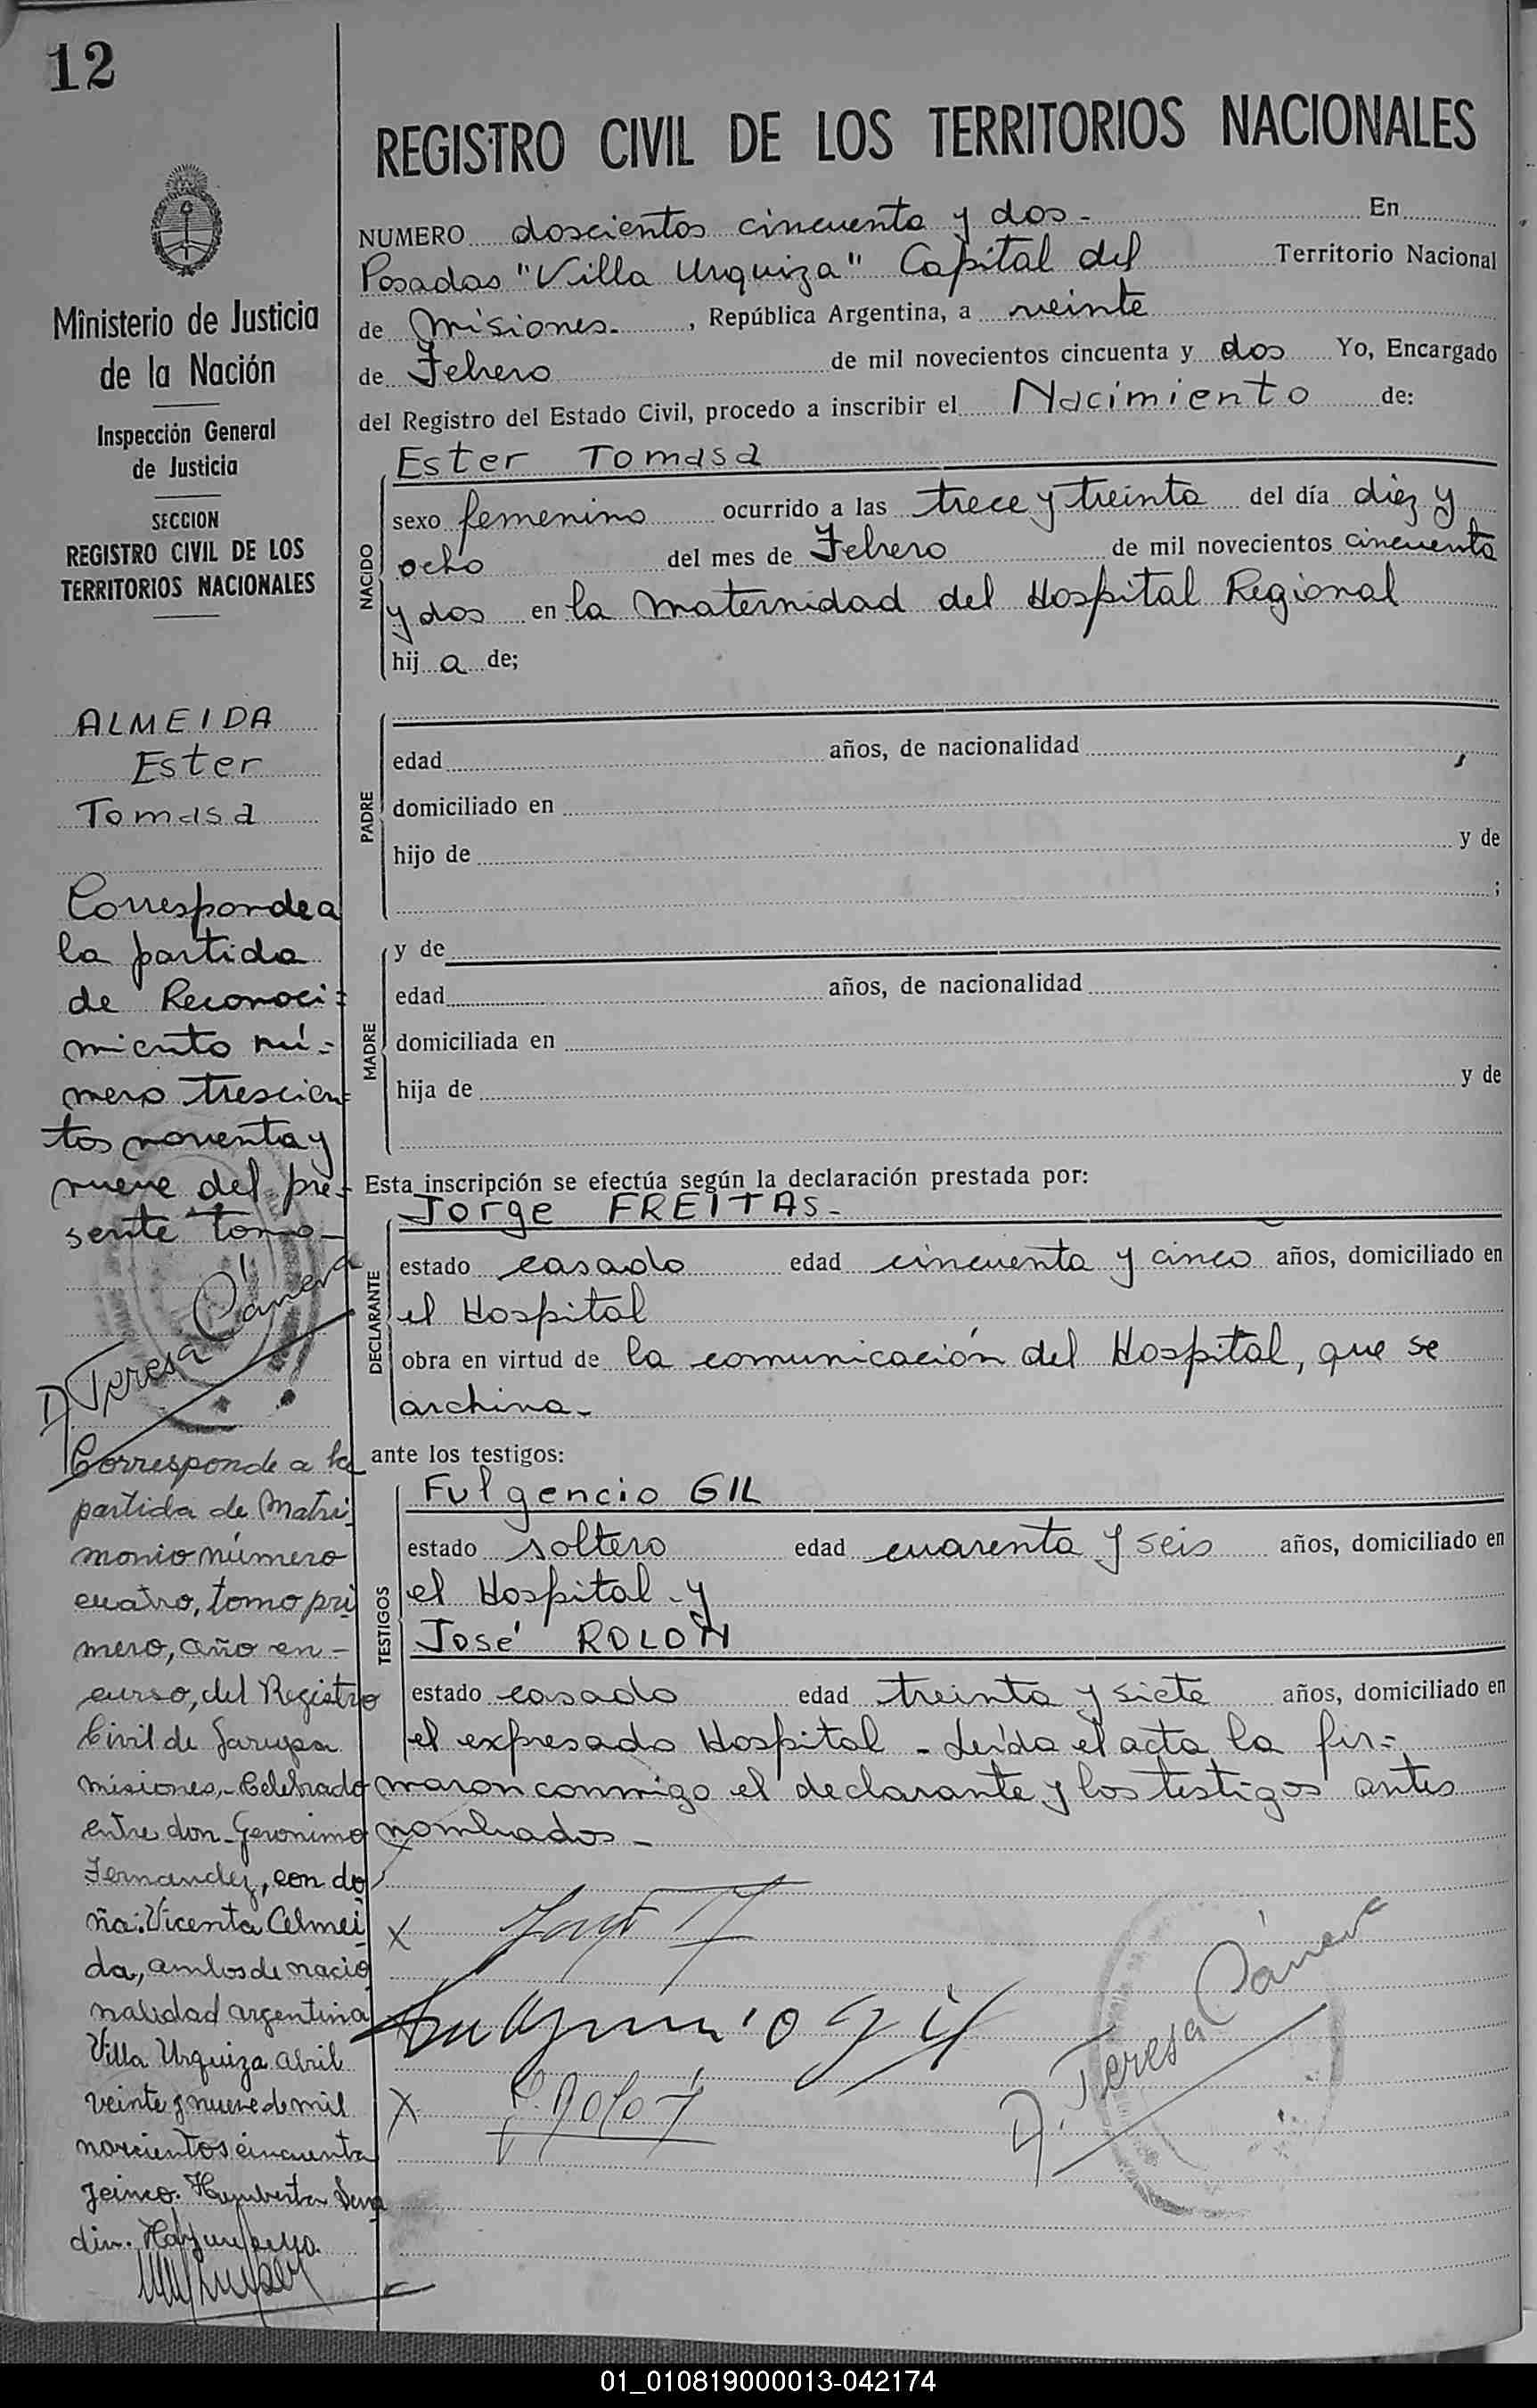 12
Ministerio de Justicia
de la Nación
Inspección General
de Justicia
SECCION
REGISTRO CIVIL DE LOS
TERRITORIOS NACIONALES
ALMEIDA
Ester
Tomasa
Corresponde a
la partida
de Reconoci=
miento nú-=
mero trescien=
tos noventa y
nueve del pre-
sente tomo-
D. Teresa Cáneva
Corresponde a la
partida de Matri-
monio número
cuatro, tomo pri
mero, año en-
curso, del Registro
Civil de Garupa
Misiones,-Celebrado
entre don-Geronimo
Fernandez, con do
ña: Vicenta Almei
da, ambos de nacio
nalidad argentina
Villa Urquiza abril
veinte y nueve de mil
novecientos cincuenta
y cinco. Humberto
REGISTRO CIVIL DE LOS TERRITORIOS NACIONALES
NUMERO doscientos cincuenta y dos- En
Posadas "Villa Urquiza" Capital del Territorio Nacional
de Misiones-, República Argentina, a veinte
de Febrero de mil novecientos cincuenta y dos Yo, Encargado
del Registro del Estado Civil, procedo a inscribir el Nacimiento de:
Ester Tomasa
NACIDO
sexo femenino ocurrido a las trece y treinta del día diez y
ocho del mes de Febrero de mil novecientos cincuenta
y dos en la Maternidad del Hospital Regional
hij a de;
PADRE
edad años, de nacionalidad ,
domiciliado en
hijo de y de
;
MADRE
y de
edad años, de nacionalidad
domiciliada en
hija de y de
Esta inscripción se efectúa según la declaración prestada por:
Jorge FREITAS-
DECLARANTE
estado casado edad cincuenta y cinco años, domiciliado en
el Hospital
obra en virtud de la comunicación del Hospital, que se
archiva-
ante los testigos:
Fulgencio GIL
TESTIGOS
estado soltero edad cuarenta y seis años, domiciliado en
el Hospital-y
José ROLON
estado casado edad treinta y siete años, domiciliado en
el expresado Hospital-Leída el acta la fir-=
maron conmigo el declarante y los testigos antes
nombrados-
D. Teresa Cáneva
01_010819000013-042174